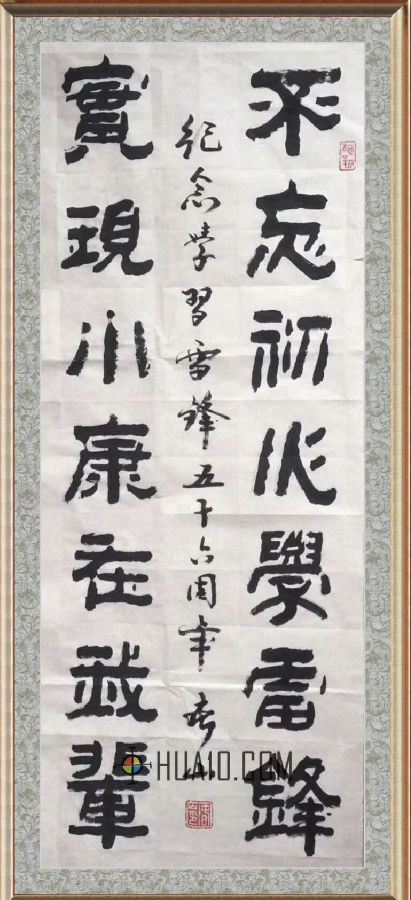 不忘初心學雷鋒
實現小康在我輩
紀念學習雷鋒五十六周年
HUA10.COM